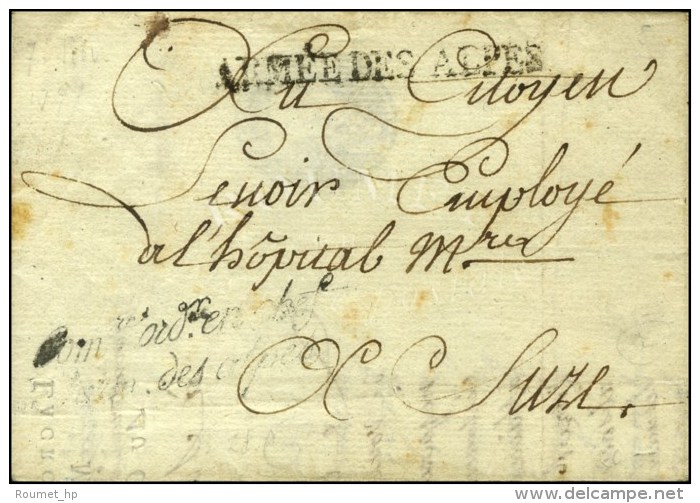 ARMÉE DES ALPES
Au Citoyen
Lenoir Employé
à l'hôpital Mre
Comre ordr. en chef
des alpes
A Suze.
Roumet_hp
www.delcampe.net